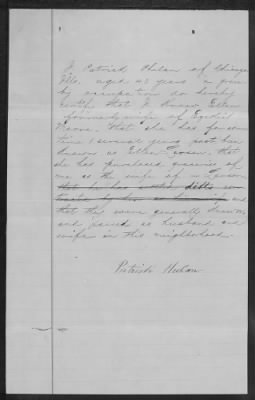 I Patrick Phelan of Chicago
Ills. aged 45 years a grocer
by occupation do hereby
certify that I knew Ellen
formerly wife of
Moore. That she has for some
time & several years past been
known as Ellen that
she has purchased groceries of
me as the wife of
that he has
and
that they were generally known
and passed as husband and
wife in this neighborhood.
Patrick Phelan